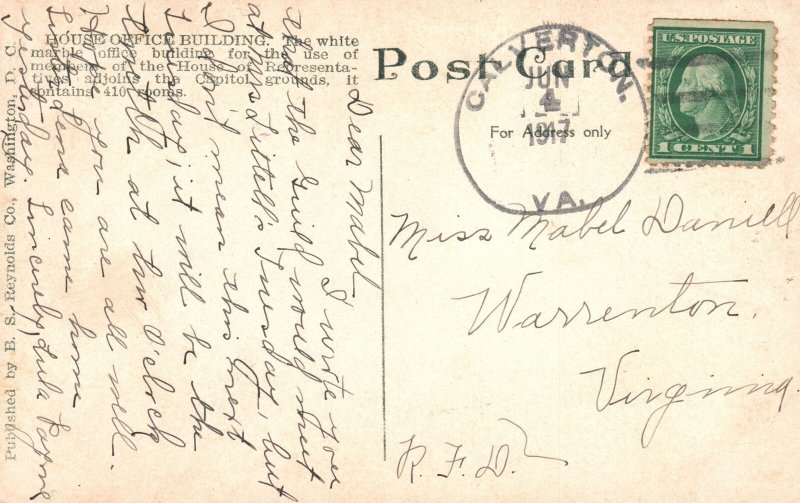 HOUSE OFFICE BUILDING. The white
marble office building for the use of
members of the House of Representa-
tives adjoins the Capitol grounds, it
contains 410 rooms.
Published by B. S. Reynolds Co., Washington, D. C.
Post Card
For Address only
CALVERTON,
JUN
4
1917
VA.
U.S. POSTAGE
1 CENT 1
Dear Mabel,
I wrote you
that the Guild would meet
at Mrs Littell's Tuesday, but
I didn't mean this next
Tuesday, it will be the
12th at two O'clock
Hope you are all well.
Lena came home
Yesterday. Sincerely, Lula Payne
Miss Mabel Daniell
Warrenton,
Virginia.
R. F. D.